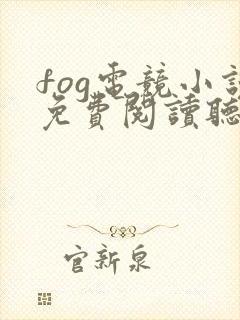 fog電競小說
免費閱讀聽
官新泉